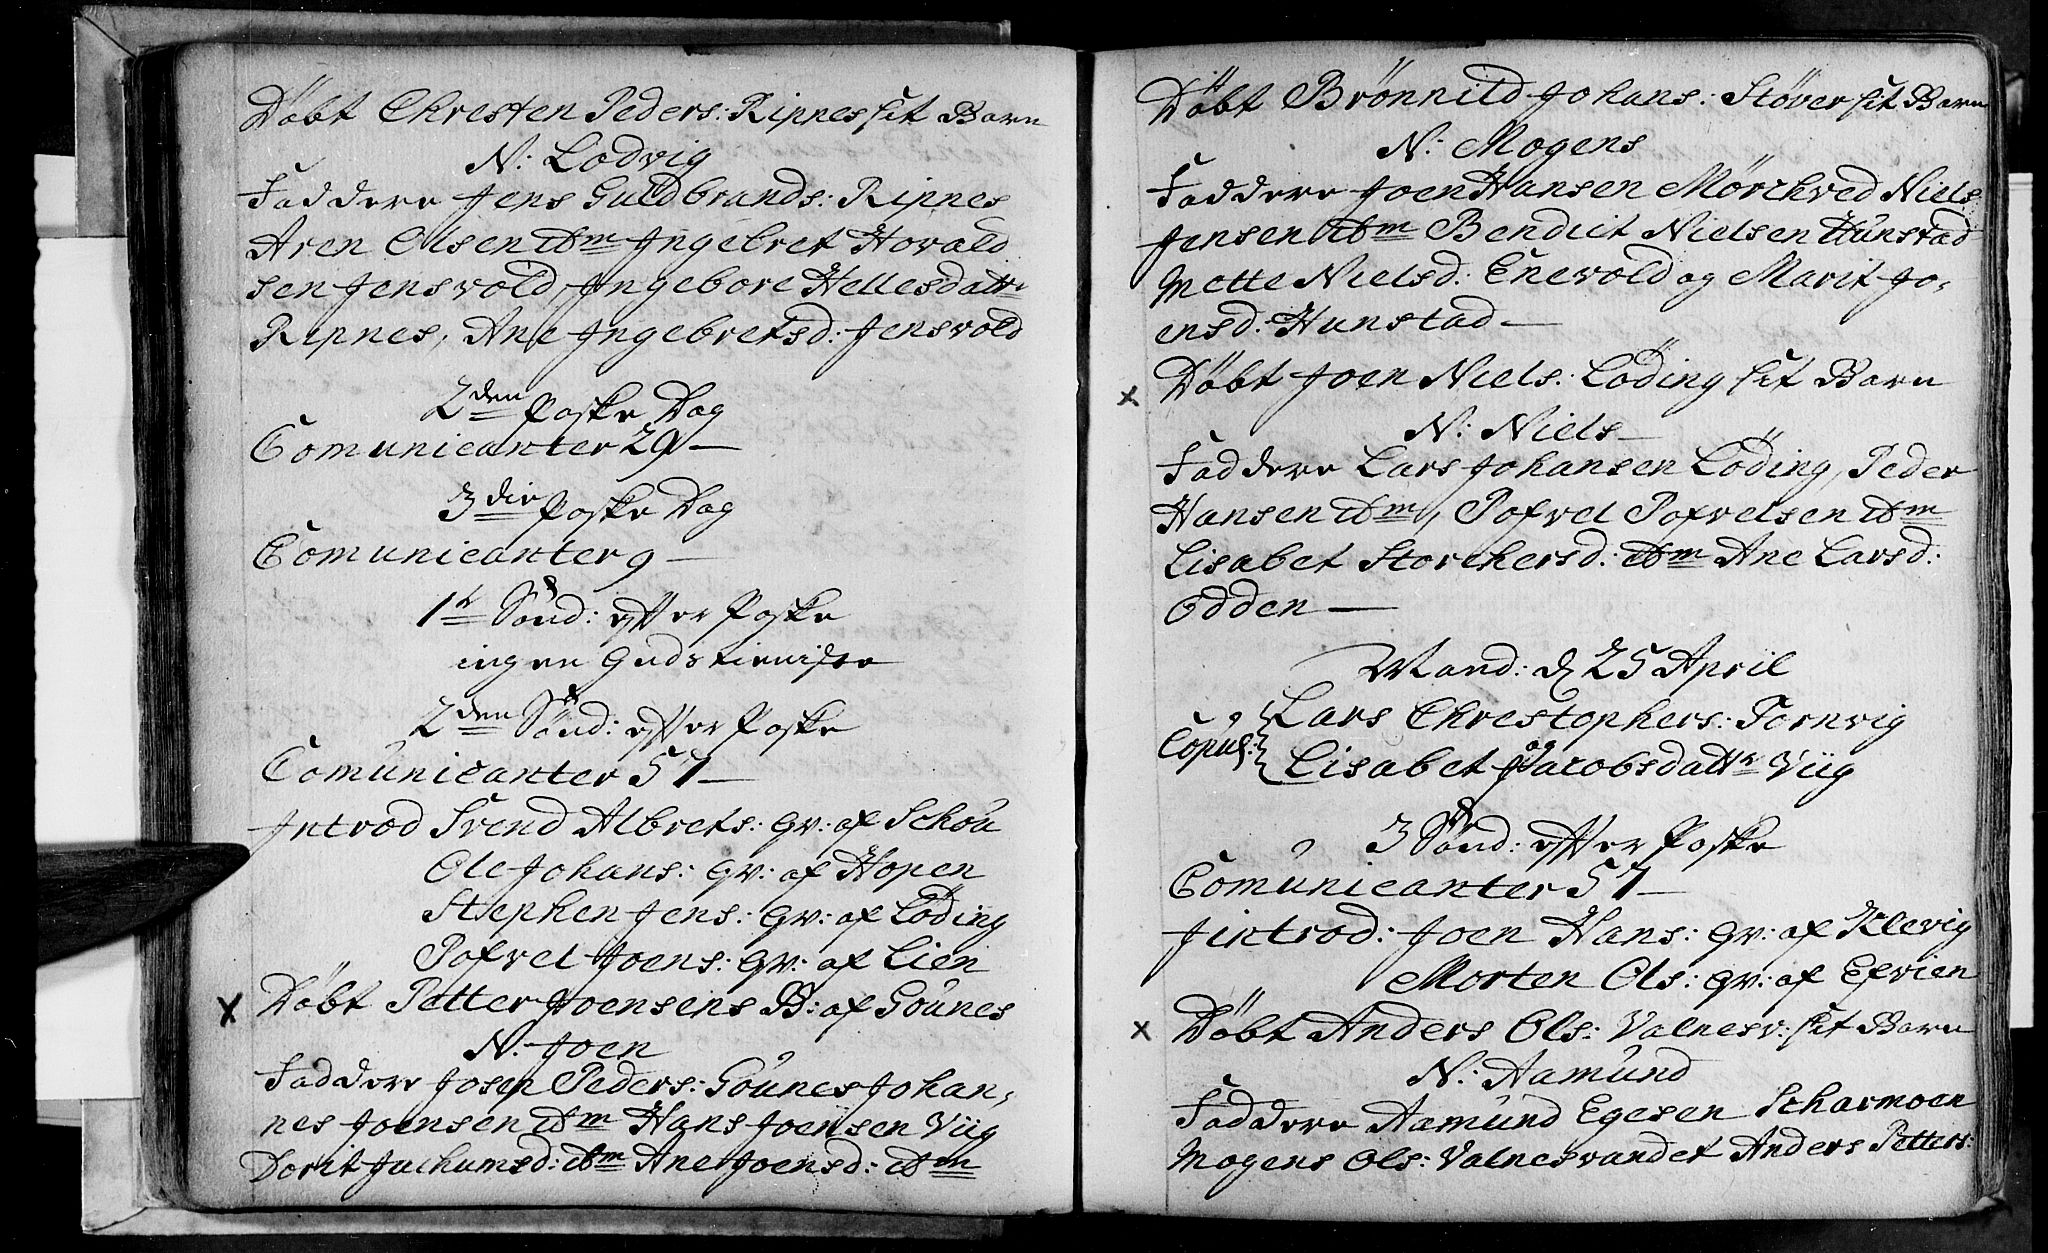 Döbt Chresten Peders: Ripnes sit Barn
N: Lodvig
Faddere Jens Guldbrands: Ripnes
Aren Olsen ibm Ingebret Hovald
sen Jensvold, Ingebore Hellesdattr
Ripnes, Ane Ingebretsd: Jensvold
2den Paske Dag
Comunicanter 29 —
3die Paske Dag
Comunicanter 9 —
1te Sönd: effter Paske
ingen Gudstieniste
2den Sönd: effter Paske
Comunicanter 57 —
Introd Svend Albrets: qv: af Schou
Ole Johans: qv: af Hopen
Stephen Jens: qv: af Löding
Pofvel Joens: qv: af Lien
x Döbt Petter Joensens B: af Gounes
N. Joen
Faddere Josen Peders: Gounes Johan,
nes Joensen ibm Hans Joensen Viig
Dorit Juchumsd: ibm Ane Joensd: ibm
Döbt Brönnild Johans: Stöver sit Barn
N: Mogens
Faddere Joen Hansen Mörchved Niels
Jensen ibm Bendict Nielsen Hunstad
Mette Nielsd: Enevold og Marit Jo,
ensd. Hunstad —
x Döbt Joen Niels: Löding sit Barn
N: Niels —
Faddere Lars Johansen Löding, Peder
Hansen ibm, Pofvel Pofvelsen ibm
Lisabet Storchersd: ibm Ane Larsd:
Odden —
Mand: d 25 April
Copul: Lars Chrestophers: Tornvig
og
Lisabet Jacobsdattr Viig
3 Sönd: effter Paske
Comunicanter 57 —
Jintrod: Joen Hans: qv: af Klevig
Morten Ols: qv: af Efvien
x Döbt Anders Ols: Valnesv: sit Barn
N: Aamund
Faddere Aamund Egesen Scharmoen
Mogens Ols: Valnesvandet Anders Petters: